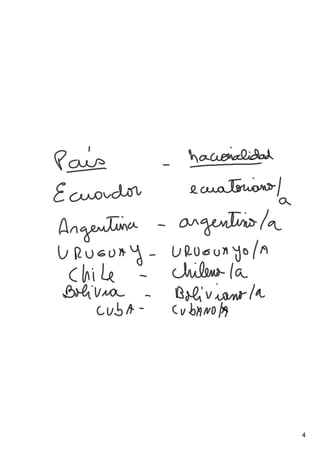 País - nacionalidad
Ecuador ecuatoriano/a
Argentina - argentino/a
URUGUAY - URUGUAYO/A
Chile - chileno/a
Bolivia - Boliviano/a
CUBA - CUBANO/A
4